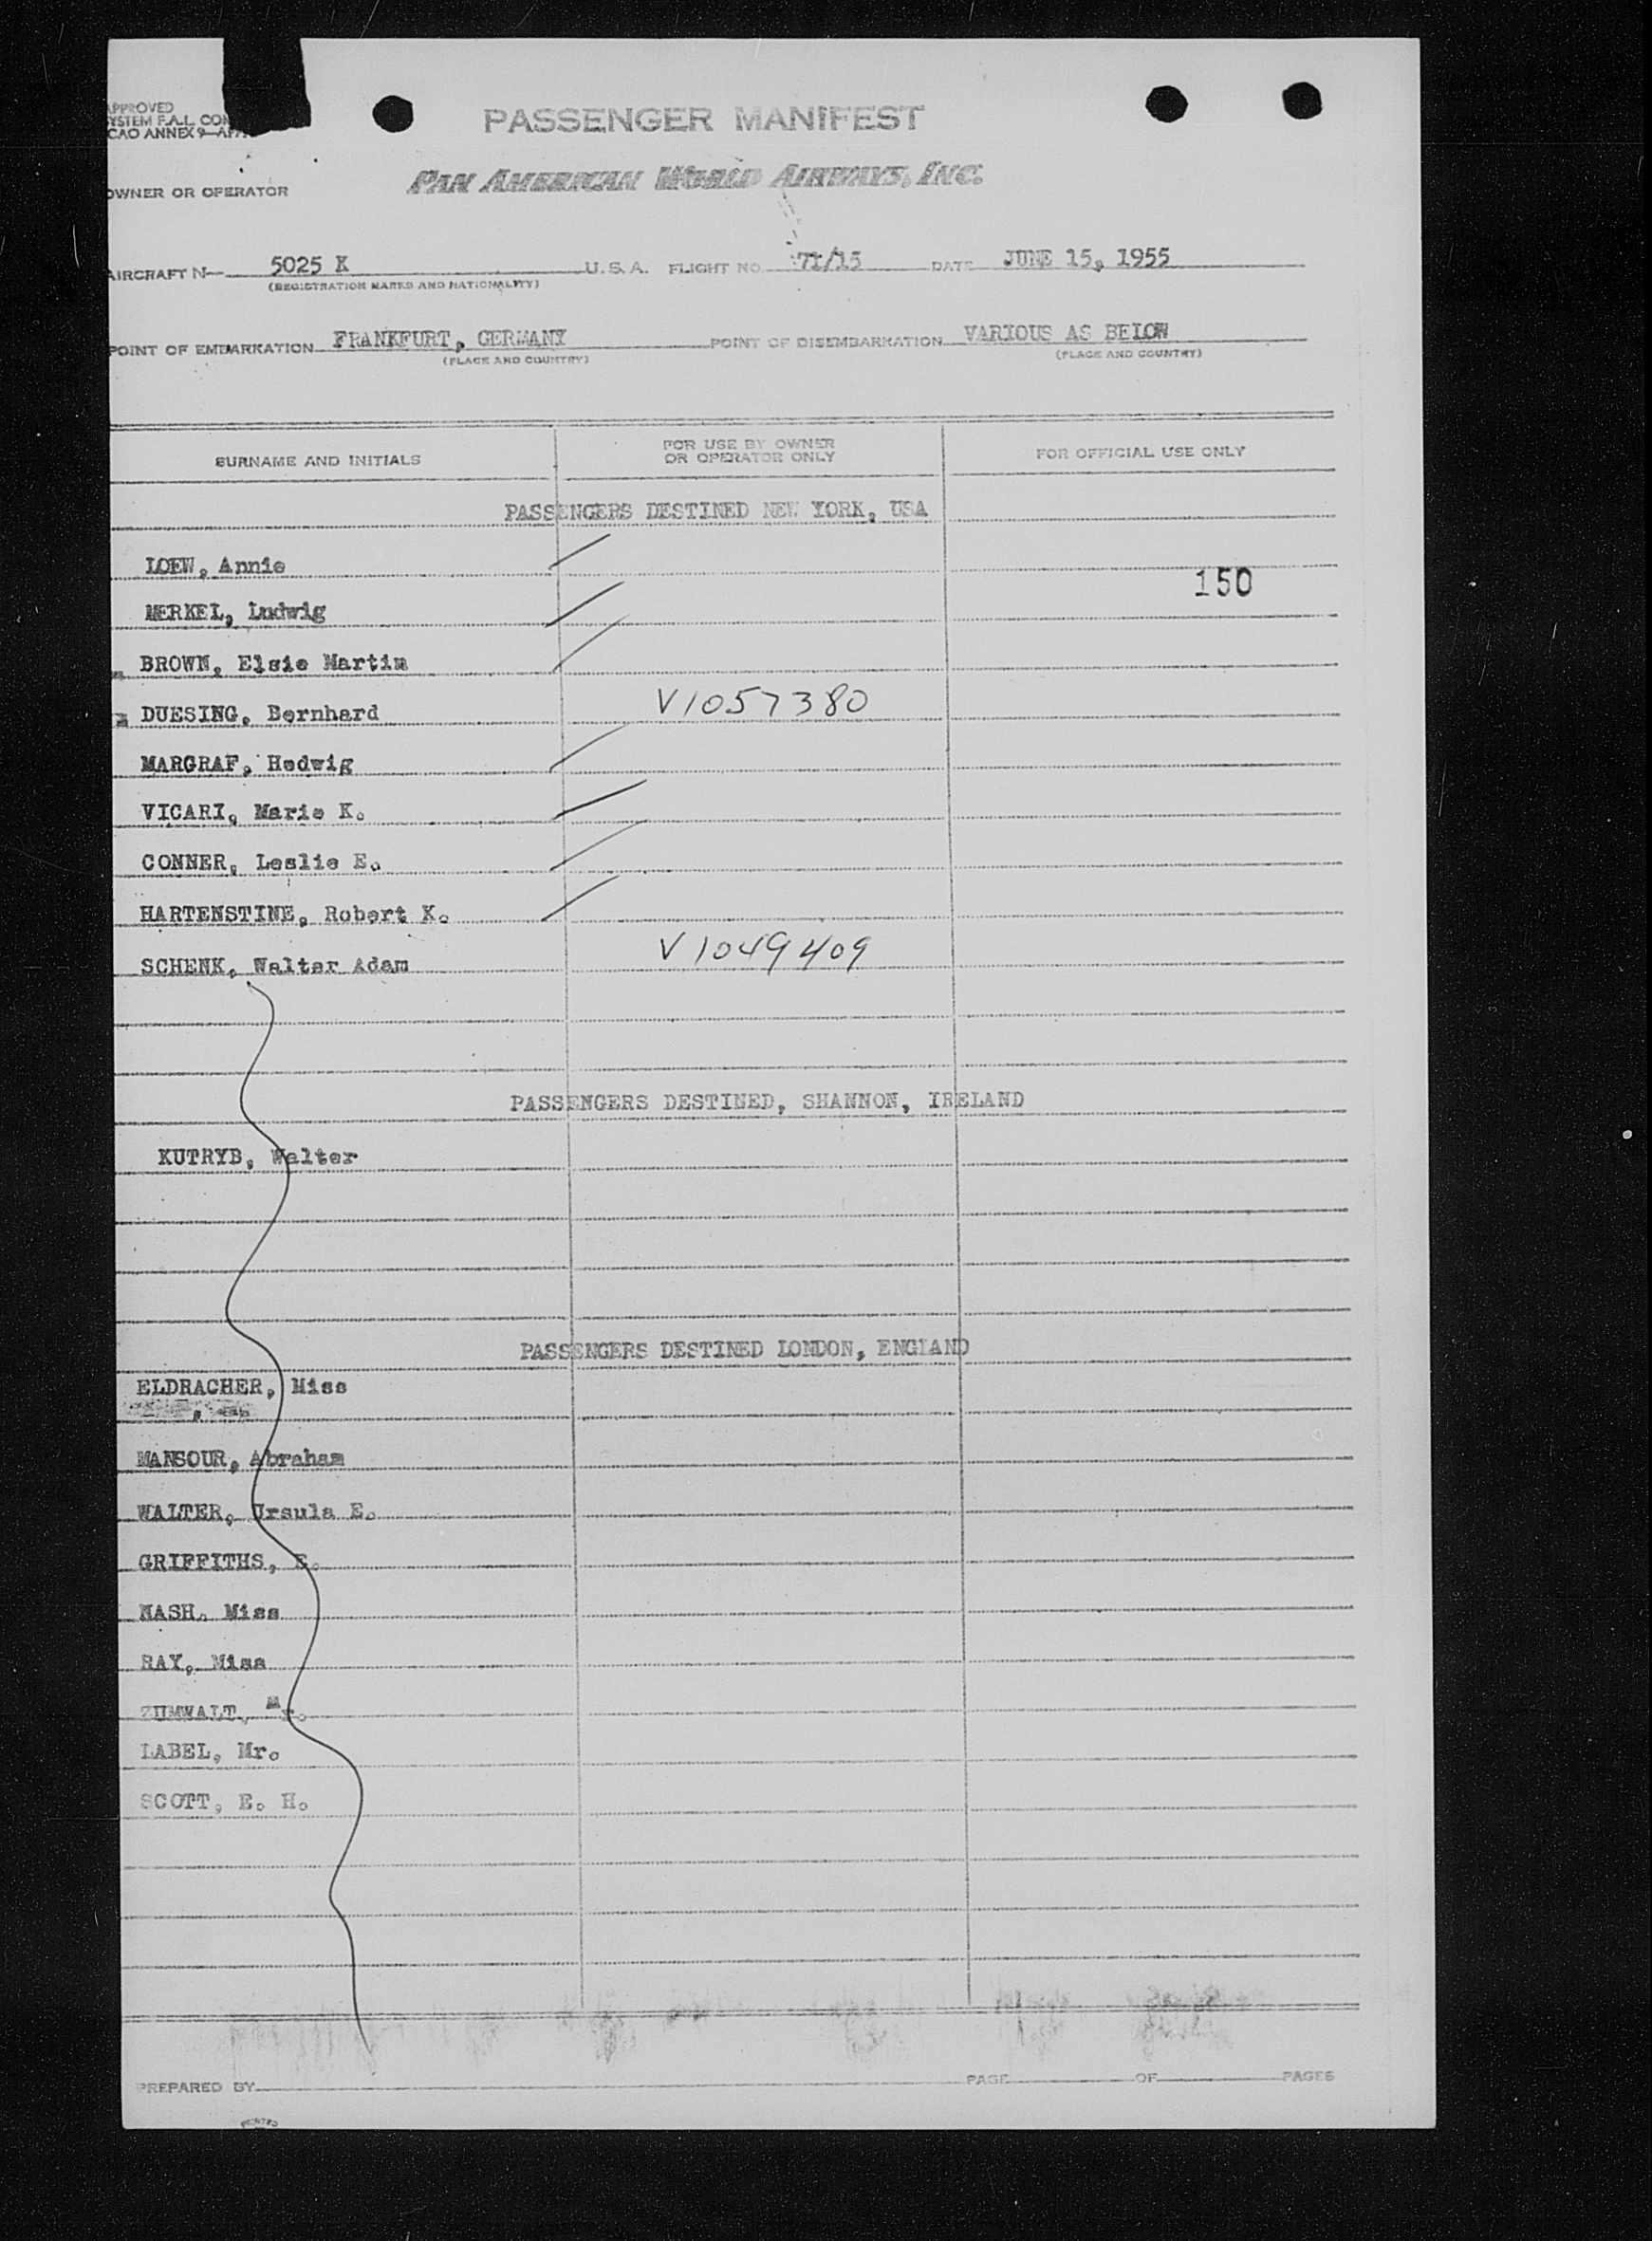 APPROVED
YSTEM F.A.L. COM
CAO ANNEX 9—APP
PASSENGER MANIFEST
OWNER OR OPERATOR PAN AMERICAN WORLD AIRWAYS, INC.
AIRCRAFT N— 5025 K U.S.A. FLIGHT NO. 71/15 DATE JUNE 15, 1955
(REGISTRATION MARKS AND NATIONALITY)
POINT OF EMBARKATION FRANKFURT, GERMANY POINT OF DISEMBARKATION VARIOUS AS BELOW
(PLACE AND COUNTRY) (PLACE AND COUNTRY)
SURNAME AND INITIALS FOR USE BY OWNER OR OPERATOR ONLY FOR OFFICIAL USE ONLY
PASSENGERS DESTINED NEW YORK, USA
LOEW, Annie
150
MERKEL, Ludwig
BROWN, Elsie Martin
DUESING, Bernhard V1057380
MARGRAF, Hedwig
VICARI, Marie K.
CONNER, Leslie E.
HARTENSTINE, Robert K.
SCHENK, Walter Adam V1049409
PASSENGERS DESTINED, SHANNON, IRELAND
KUTRYB, Walter
PASSENGERS DESTINED LONDON, ENGLAND
ELDRACHER, Miss
MANSOUR, Abraham
WALTER, Ursula E.
GRIFFITHS, E.
NASH, Miss
RAY, Miss
ZUMWALT, Mr.
LABEL, Mr.
SCOTT, E. H.
PREPARED BY PAGE OF PAGES
PRINTED